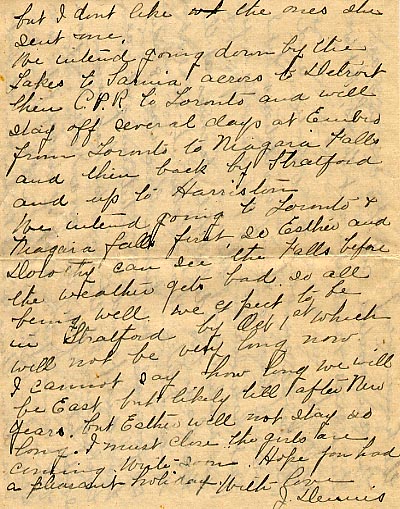 but I dont like the ones she
sent me.
We intend going down by the
Lakes to Sarnia across to Detroit
then C.P.R. to Toronto and will
stay off several days at Embro
from Toronto to Niagara Falls
and then back by Stratford
and up to Harriston
We intend going to Toronto &
Niagara falls first, so Esther and
Dorothy can see the Falls before
the weather gets bad. so all
being well we expect to be
in Stratford by Oct 1st which
will not be very long now
I cannot say how long we will
be East but likely till after New
Years. but Esther will not stay so
long. I must close the girls are
coming. Write soon. Hope you had
a pleasant holiday. With love
J Dennis